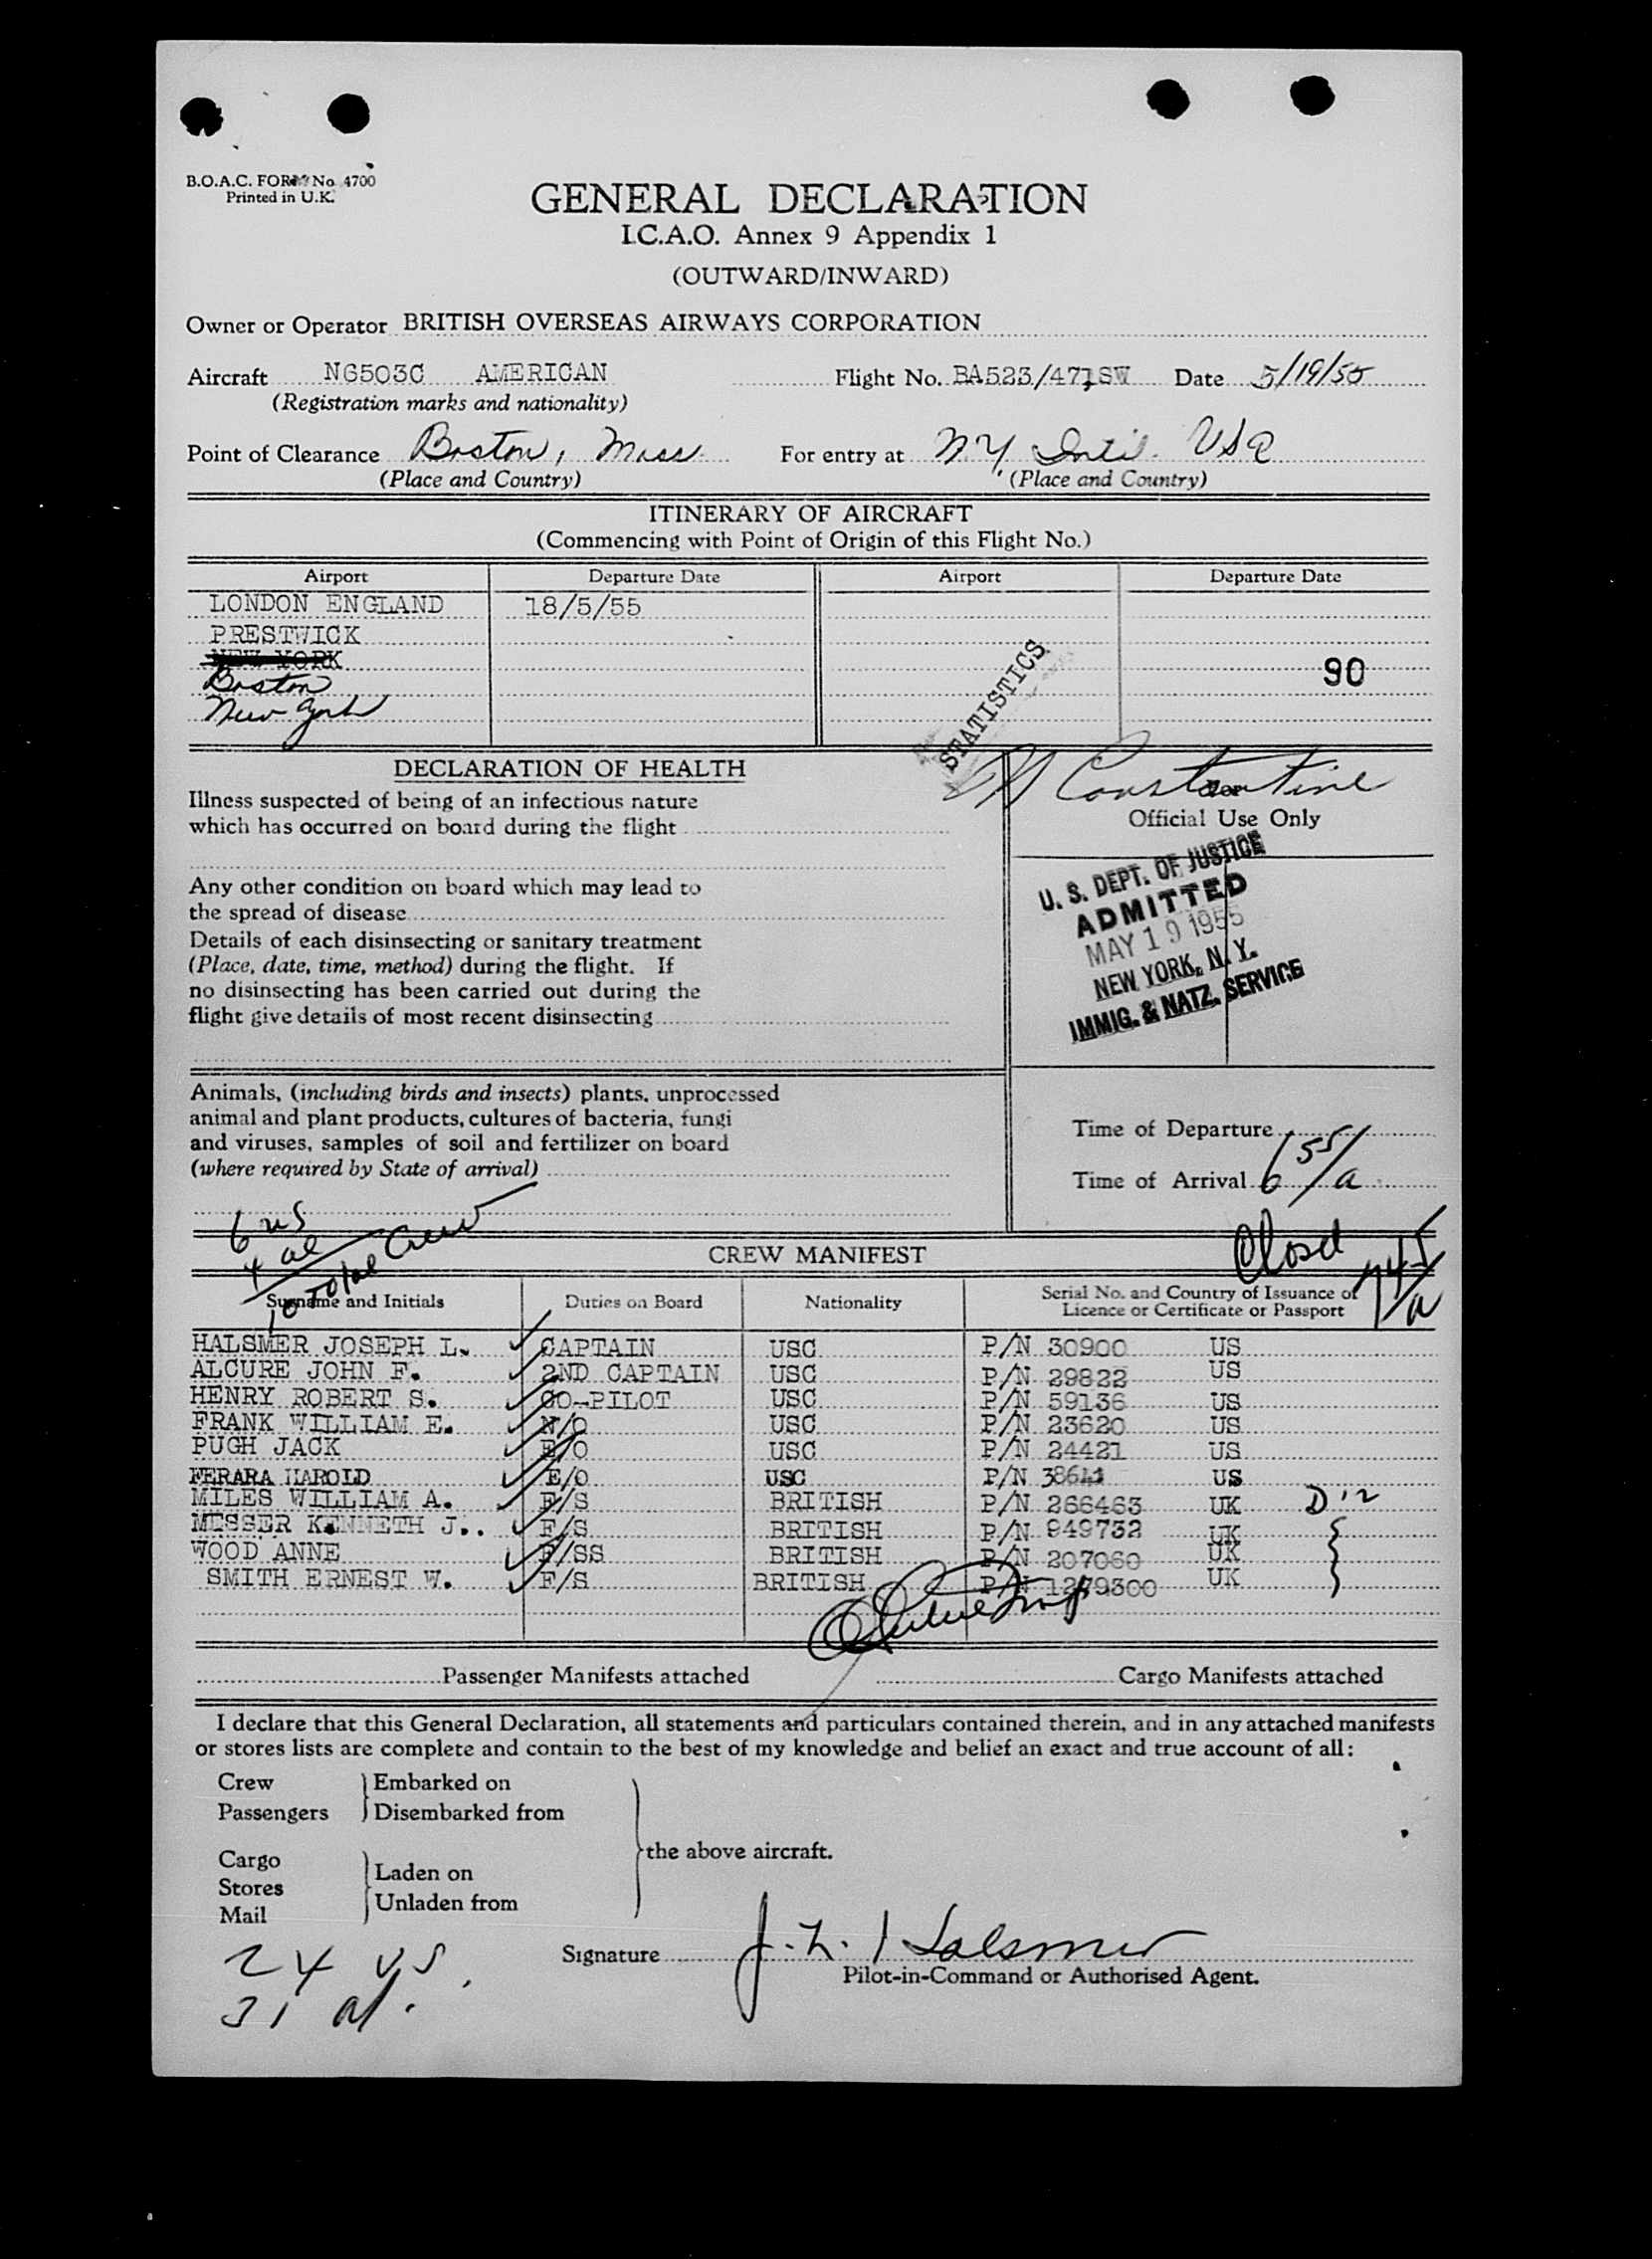 B.O.A.C. FORM No 4700
Printed in U.K.
GENERAL DECLARATION
I.C.A.O. Annex 9 Appendix 1
(OUTWARD/INWARD)
Owner or Operator BRITISH OVERSEAS AIRWAYS CORPORATION
Aircraft N6503C AMERICAN Flight No. BA523/471SW Date 5/19/55
(Registration marks and nationality)
Point of Clearance Boston, Mass For entry at NY Int'l. USA
(Place and Country) (Place and Country)
ITINERARY OF AIRCRAFT
(Commencing with Point of Origin of this Flight No.)
Airport Departure Date Airport Departure Date
LONDON ENGLAND 18/5/55
PRESTWICK
NEW YORK
Boston 90
New York
STATISTICS
DECLARATION OF HEALTH
Constantine
For
Official Use Only
Illness suspected of being of an infectious nature
which has occurred on board during the flight
Any other condition on board which may lead to
the spread of disease
Details of each disinsecting or sanitary treatment
(Place, date, time, method) during the flight. If
no disinsecting has been carried out during the
flight give details of most recent disinsecting
U. S. DEPT. OF JUSTICE
ADMITTED
MAY 19 1955
NEW YORK, N. Y.
IMMIG. & NATZ. SERVICE
Animals, (including birds and insects) plants, unprocessed
animal and plant products, cultures of bacteria, fungi
and viruses, samples of soil and fertilizer on board
(where required by State of arrival)
Time of Departure
Time of Arrival 6 55/a
6 US
4 al
10 Total Crew
Closed 745/a
CREW MANIFEST
Surname and Initials Duties on Board Nationality Serial No. and Country of Issuance of
Licence or Certificate or Passport
HALSMER JOSEPH L. CAPTAIN USC P/N 30900 US
ALCURE JOHN F. 2ND CAPTAIN USC P/N 29822 US
HENRY ROBERT S. CO-PILOT USC P/N 59136 US
FRANK WILLIAM E. N/O USC P/N 23620 US
PUGH JACK E/O USC P/N 24421 US
FERARA HAROLD E/O USC P/N 38641 US
MILES WILLIAM A. F/S BRITISH P/N 266463 UK D'2
MESSER KENNETH J.. F/S BRITISH P/N 949732 UK
WOOD ANNE F/SS BRITISH P/N 207060 UK
SMITH ERNEST W. F/S BRITISH P/N 1279300 UK
Passenger Manifests attached Cargo Manifests attached
I declare that this General Declaration, all statements and particulars contained therein, and in any attached manifests
or stores lists are complete and contain to the best of my knowledge and belief an exact and true account of all:
Crew Embarked on
Passengers Disembarked from
the above aircraft.
Cargo
Stores Laden on
Mail Unladen from
24 US.
31 al.
Signature J. L. Halsmer
Pilot-in-Command or Authorised Agent.